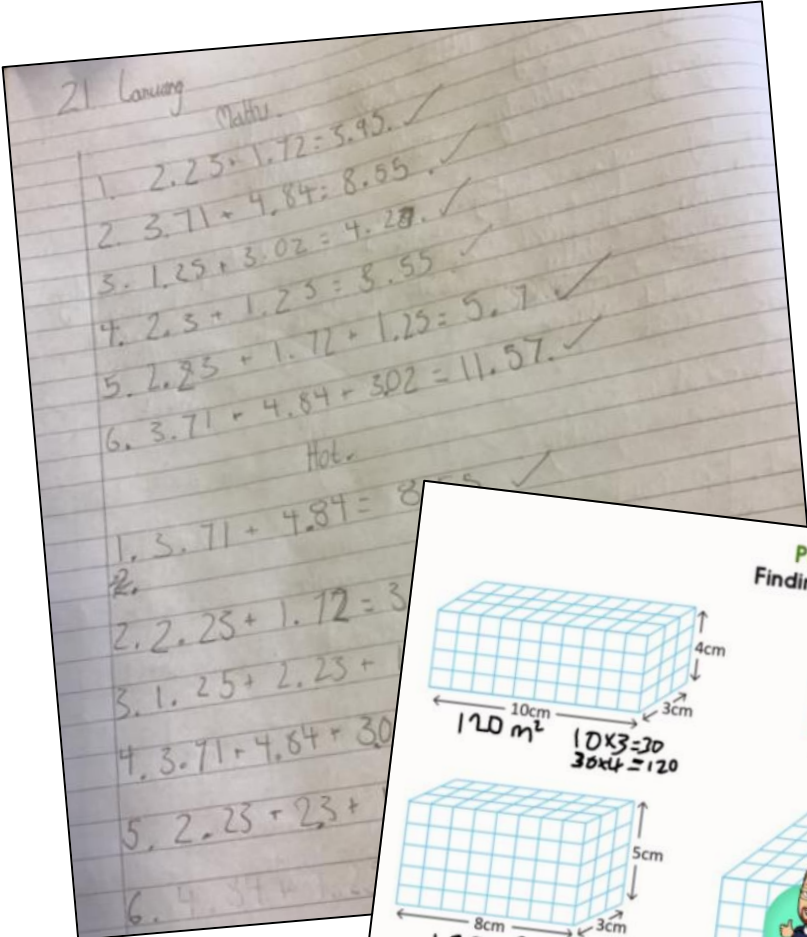 21 January
Maths.
1. 2.23 + 1.72 = 3.95.
2. 3.71 + 4.84 = 8.55.
3. 1.25 + 3.02 = 4.27.
4. 2.3 + 1.25 = 3.55
5. 2.23 + 1.72 + 1.25 = 5.
6. 3.71 + 4.84 + 3.02 = 11.57.
Hot.
1. 3.71 + 4.84 = 8
2.
2. 2.23 + 1.72 = 3
3. 1.25 + 2.23 +
4. 3.71 + 4.84 + 3.0
5. 2.23 + 2.3 +
6. 4.84 +
P
Findin
4cm
10cm
3cm
120 m²
10x3=30
30x4=120
5cm
8cm
3cm